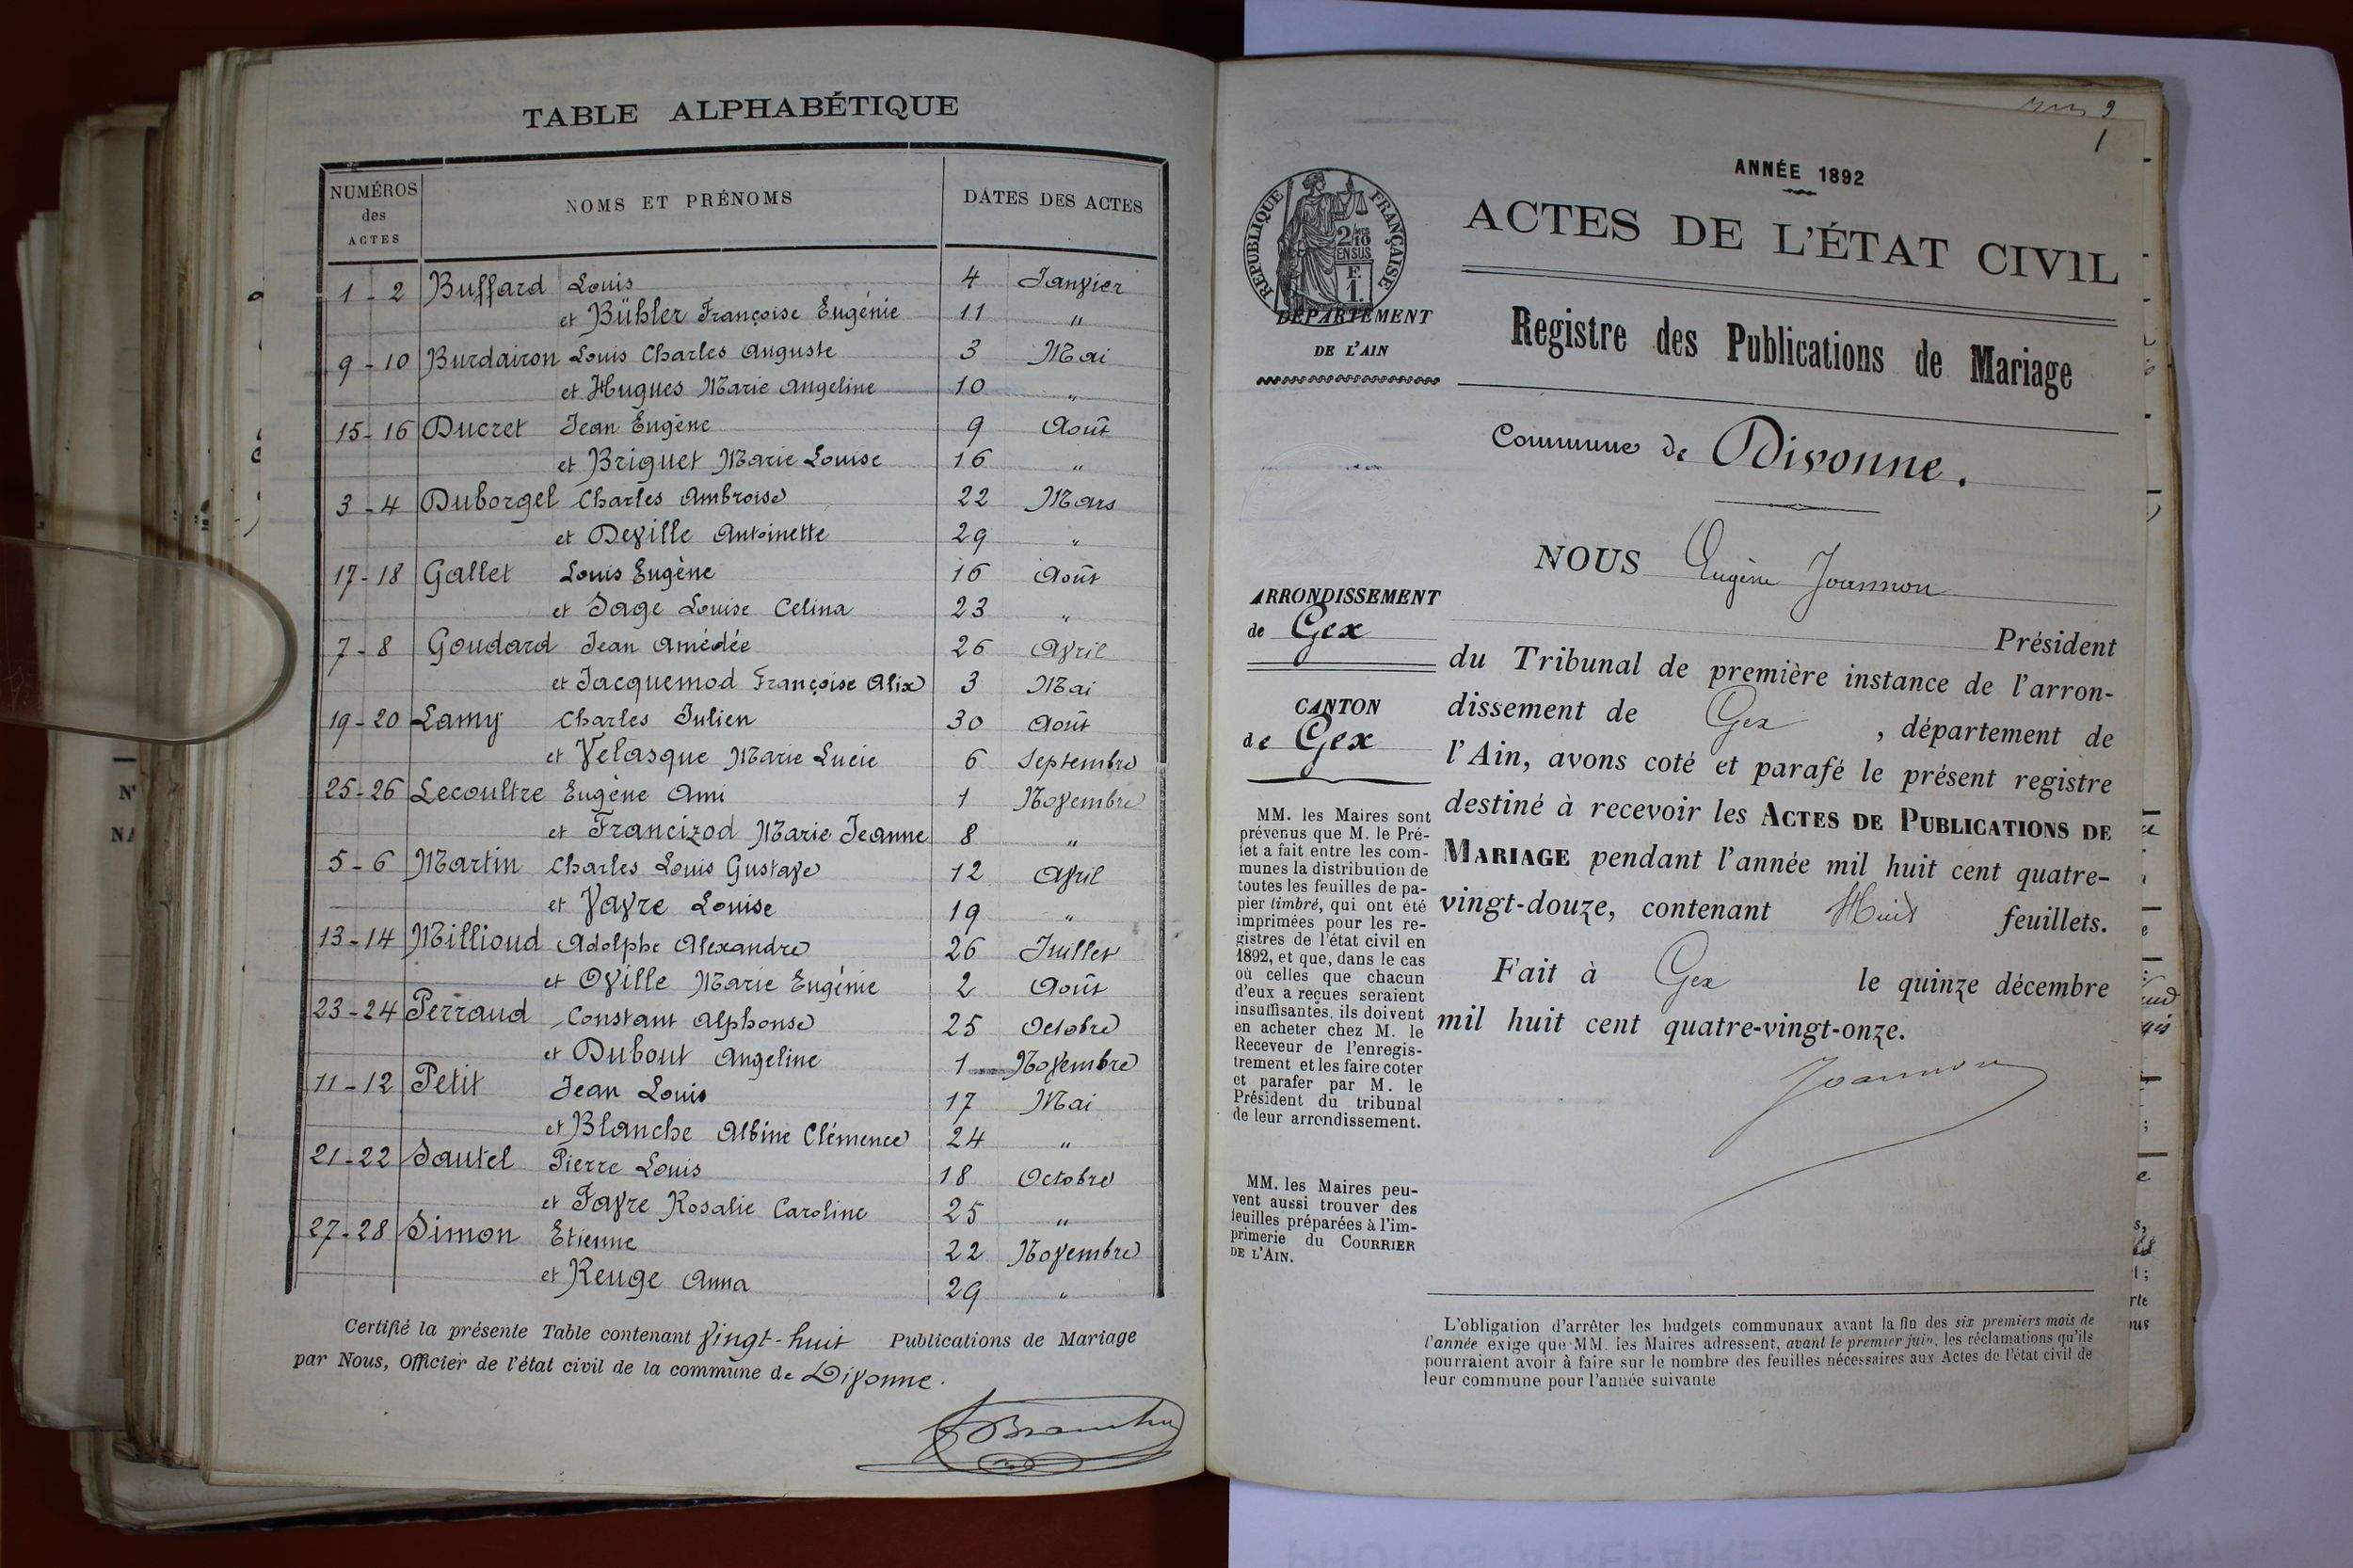 TABLE ALPHABÉTIQUE
NUMÉROS des ACTES NOMS ET PRÉNOMS DATES DES ACTES
1 - 2 Buffard Louis 4 Janvier
et Bühler Françoise Eugénie 11 "
9 - 10 Burdairon Louis Charles Auguste 3 Mai
et Hugues Marie Angeline 10 "
15 - 16 Ducret Jean Eugène 9 Août
et Briguet Marie Louise 16 "
3 - 4 Duborgel Charles Ambroise 22 Mars
et Deville Antoinette 29 "
17 - 18 Gallet Louis Eugène 16 Août
et Sage Louise Celina 23 "
7 - 8 Goudard Jean Amédée 26 Avril
et Jacquemod Françoise Alix 3 Mai
19 - 20 Lamy Charles Julien 30 Août
et Velasque Marie Lucie 6 Septembre
25 - 26 Lecoultre Eugène Ami 1 Novembre
et Francizod Marie Jeanne 8 "
5 - 6 Martin Charles Louis Gustave 12 Avril
et Vavre Louise 19 "
13 - 14 Millioud Adolphe Alexandre 26 Juillet
et Oville Marie Eugénie 2 Août
23 - 24 Perraud Constant Alphonse 25 Octobre
et Dubout Angeline 1 Novembre
11 - 12 Petit Jean Louis 17 Mai
et Blanche Albine Clémence 24 "
21 - 22 Sautel Pierre Louis 18 Octobre
et Favre Rosalie Caroline 25 "
27 - 28 Simon Etienne 22 Novembre
et Reuge Anna 29 "
Certifié la présente Table contenant vingt-huit Publications de Mariage
par Nous, Officier de l'état civil de la commune de Divonne.
1
ANNÉE 1892
ACTES DE L'ÉTAT CIVIL
RÉPUBLIQUE FRANÇAISE
2/10 MES
EN SUS
F.
1.
DÉPARTEMENT
DE L'AIN
Registre des Publications de Mariage
Commune de Divonne.
NOUS Eugène Joannon
Président
du Tribunal de première instance de l'arron-
dissement de Gex , département de
l'Ain, avons coté et parafé le présent registre
destiné à recevoir les ACTES DE PUBLICATIONS DE
MARIAGE pendant l'année mil huit cent quatre-
vingt-douze, contenant Huit feuillets.
Fait à Gex le quinze décembre
mil huit cent quatre-vingt-onze.
Joannon
ARRONDISSEMENT
de Gex
CANTON
de Gex
MM. les Maires sont
prévenus que M. le Pré-
fet a fait entre les com-
munes la distribution de
toutes les feuilles de pa-
pier timbré, qui ont été
imprimées pour les re-
gistres de l'état civil en
1892, et que, dans le cas
où celles que chacun
d'eux a reçues seraient
insuffisantes, ils doivent
en acheter chez M. le
Receveur de l'enregis-
trement et les faire coter
et parafer par M. le
Président du tribunal
de leur arrondissement.
MM. les Maires peu-
vent aussi trouver des
feuilles préparées à l'im-
primerie du COURRIER
DE L'AIN.
L'obligation d'arrêter les budgets communaux avant la fin des six premiers mois de
l'année exige que MM. les Maires adressent, avant le premier juin, les réclamations qu'ils
pourraient avoir à faire sur le nombre des feuilles nécessaires aux Actes de l'état civil de
leur commune pour l'année suivante